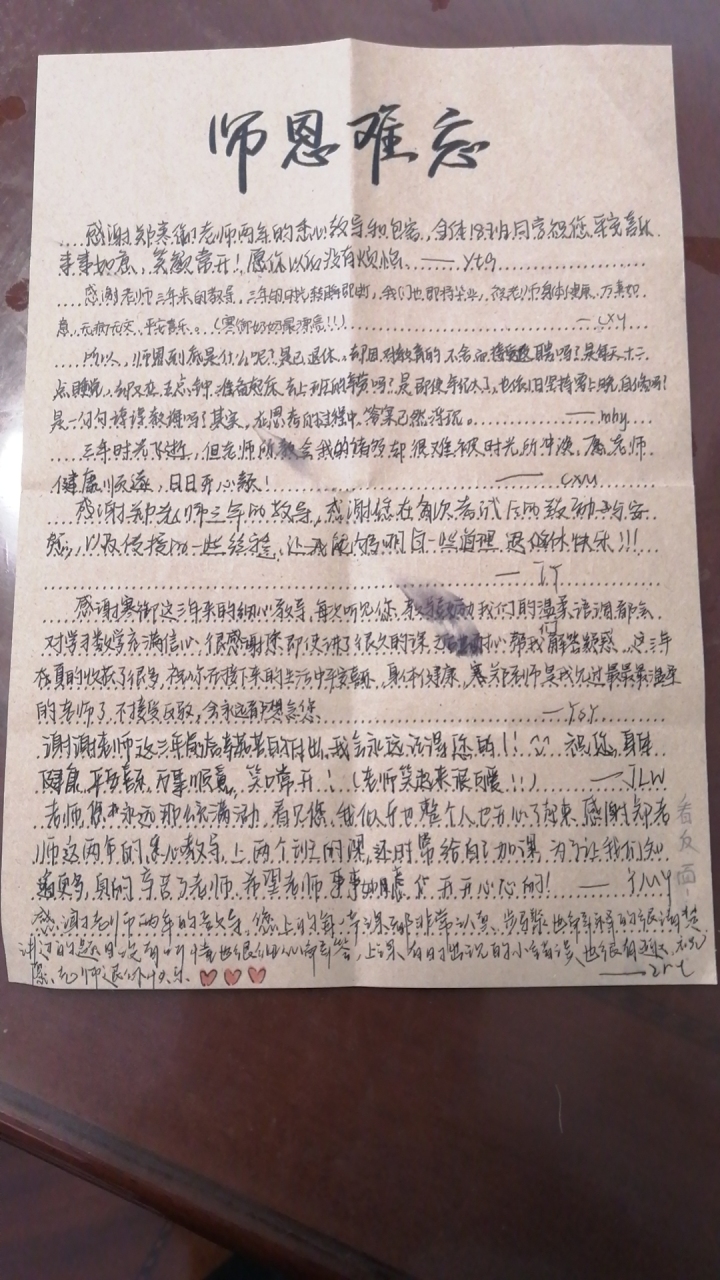 师恩难忘
感谢郑寒御老师两年的悉心教导和包容，全体18班同学祝您平安喜乐
事事如意，笑颜常开！愿你以后没有烦恼。——ytq
感谢老师三年来的教导，三年的时光转瞬即逝，我们也即将毕业，祝老师身体健康，万事如
意，无病无灾，平安喜乐。（寒御奶奶最漂亮！！） —cxy
所以，师恩到底是什么呢？是已退休，却因对教育的不舍而接受返聘吗？是每天十二
点睡觉，却又在五点钟准备起床去上班的辛劳吗？是即使年纪大了，也依旧坚持要上晚自修吗？
是一句句谆谆教诲吗？其实，在思考的过程中，答案已然浮现。 ——mhy
三年时光飞逝，但老师所教会我的诸多却很难被时光所冲淡，愿老师
健康永远，日日开心颜！ ——cxy
感谢郑老师三年的教导，感谢您在每次考试后的鼓励与安
慰，以及传授的一些经验，让我能够明白一些道理，退休快乐！！！
——TY
感谢寒御这三年来的细心教导，每次听见您教导鼓励我们的温柔语调都会
对学习数学充满信心，很感谢您即使讲了很久的课，还耐心帮我们解答疑惑，这三年
我真的收获了很多，祝你在接下来的生活中平安喜乐，身体健康，寒郑老师是我见过最最最温柔
的老师了，不接受反驳，会永远都想念您 —yoy
谢谢老师这三年的后辛茹苦的付出，我会永远记得您的！！祝您，身体
健康，平安喜乐，万事顺意，笑口常开！（老师笑起来很可爱！！） ——JLW
老师，您永远那么满活力，看见您，我似乎也整个人也开心了起来，感谢郑老
师这两年的悉心教导，上两个班的课，还时常给自己加课，为了让我们知
道更多，真的辛苦了老师，希望老师事事如意，开开心心的！ ——YMY
感谢老师两年的教导，您上的每一节课都非常认真，步骤也会写得很清楚
讲过的题目没有听懂也很细心解答，上课有时出现的小错误也很有趣，祝
愿老师退休快乐 ——zrt
看反面